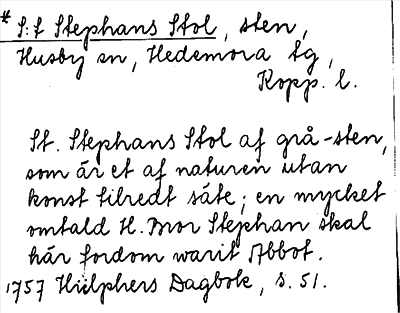 * S:t Stephans Stol, sten,
Husby sn, Hedemora tg,
Kopp. l.
St. Stephans Stol af grå-sten,
som är et af naturen utan
konst tilredt säte; en mycket
omtald H. Mor Stephan skal
här fordom warit Abbot.
1757 Hülphers Dagbok, s. 51.